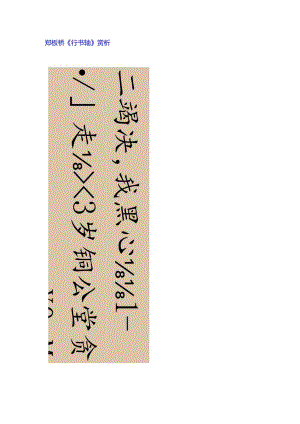 郑板桥《行书轴》赏析
二竭决，我黑心⅛⅛1-
•/」走⅛><3岁铜公堂贪